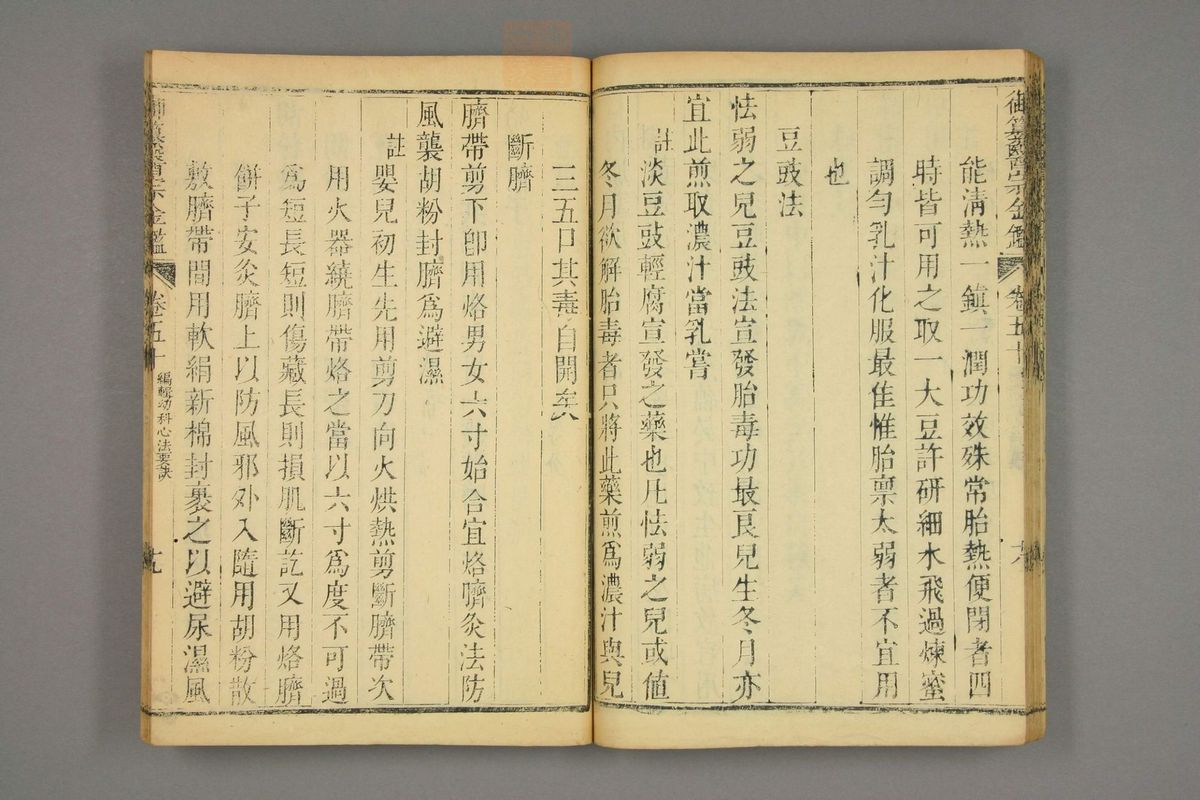 御纂醫宗金鑑
卷五十
能清熱一鎮一潤功效殊常胎熱便閉者四
時皆可用之取一大豆許研細水飛過煉蜜
調勻乳汁化服最佳惟胎禀太弱者不宜用
也
豆豉法
怯弱之兒豆豉法宣發胎毒功最良兒生冬月亦
宜此煎取濃汁當乳嘗
註淡豆豉輕腐宣發之藥也凡怯弱之兒或值
冬月欲解胎毒者只將此藥煎爲濃汁與兒
三五口其毒自開矣
斷臍
臍帶剪下卽用烙男女六寸始合宜烙臍灸法防
風襲胡粉封臍爲避濕
註嬰兒初生先用剪刀向火烘熱剪斷臍帶次
用火器繞臍帶烙之當以六寸爲度不可過
爲短長短則傷藏長則損肌斷訖又用烙臍
餅子安灸臍上以防風邪外入隨用胡粉散
敷臍帶間用軟絹新棉封裹之以避尿濕風
御纂醫宗金鑑
卷五十
編輯幼科心法要訣
十九